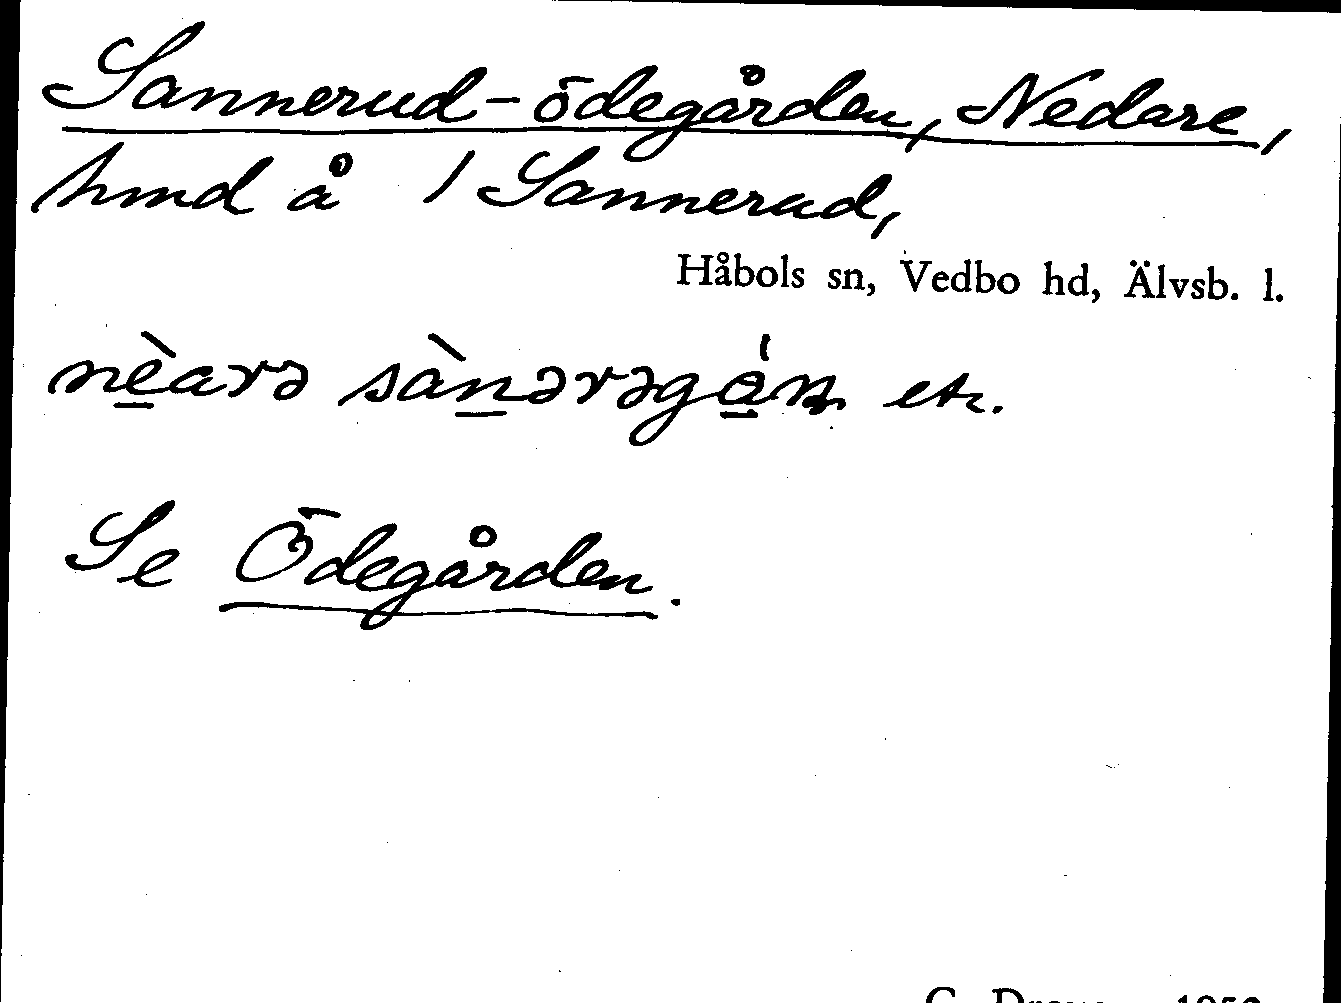 Sannerud-ödegården, Nedare,
hmd å 1 Sannerud,
Håbols sn, Vedbo hd, Älvsb. l.
nèarə sànərəgán etc.
Se Ödegården.